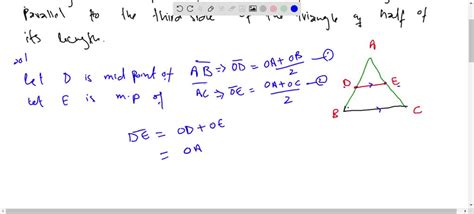 Parallel to the third side of the triangle & half of
its length.
sol
Let D is mid point of AB ⇒ OD = OA + OB / 2 — ①
Let E is m.p of AC ⇒ OE = OA + OC / 2 — ②
DE = OD + OE
= OA
A
D
E
B
C